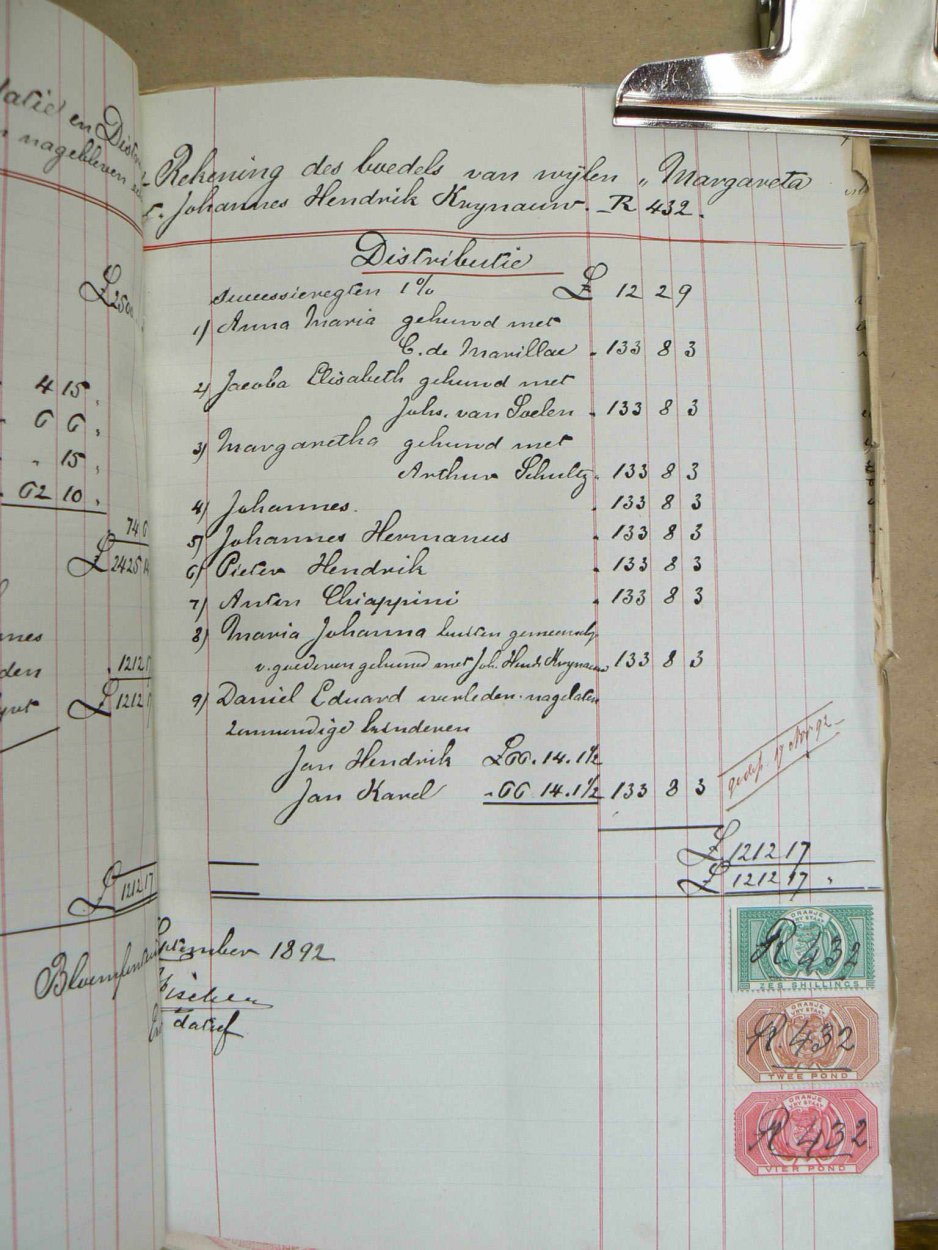 latie en Distri
n nagebleven
£2500
4 15 "
6 6 "
" 15 "
62 10 "
74 6
£2425 14
mes
den 1212 17
£1212 17
£1212 17
Rekening des boedels van wylen „ Margareta
Johannes Hendrik Krynauw. R 432.
Distributie
Successieregten 1% £ 12 2 9
1) Anna Maria gehuwd met
C. de Marillac " 133 8 3
2) Jacoba Elisabeth gehuwd met
Johs. van Soelen " 133 8 3
3) Margaretha gehuwd met
Arthur Schultz " 133 8 3
4) Johannes. " 133 8 3
5) Johannes Hermanus " 133 8 3
6) Pieter Hendrik " 133 8 3
7) Anton Chiappini " 133 8 3
8) Maria Johanna buiten gemeensch.
v. goederen gehuwd met Joh. Hendk Krynauw 133 8 3
9) Daniel Eduard overleden. nagelaten
2 onmundige kinderen
Jan Hendrik £66. 14. 1½
Jan Karel " 66 14. 1½ 133 8 3
17 Nov 92
£ 1212 17
£ 1212 17 "
Bloemfontein
tember 1892
Fischer
datief
ORANJE
VRY STAAT
R. 432
ZES SHILLINGS
ORANJE
VRY STAAT
R. 432
TWEE POND
ORANJE
VRY STAAT
R 432
VIER POND